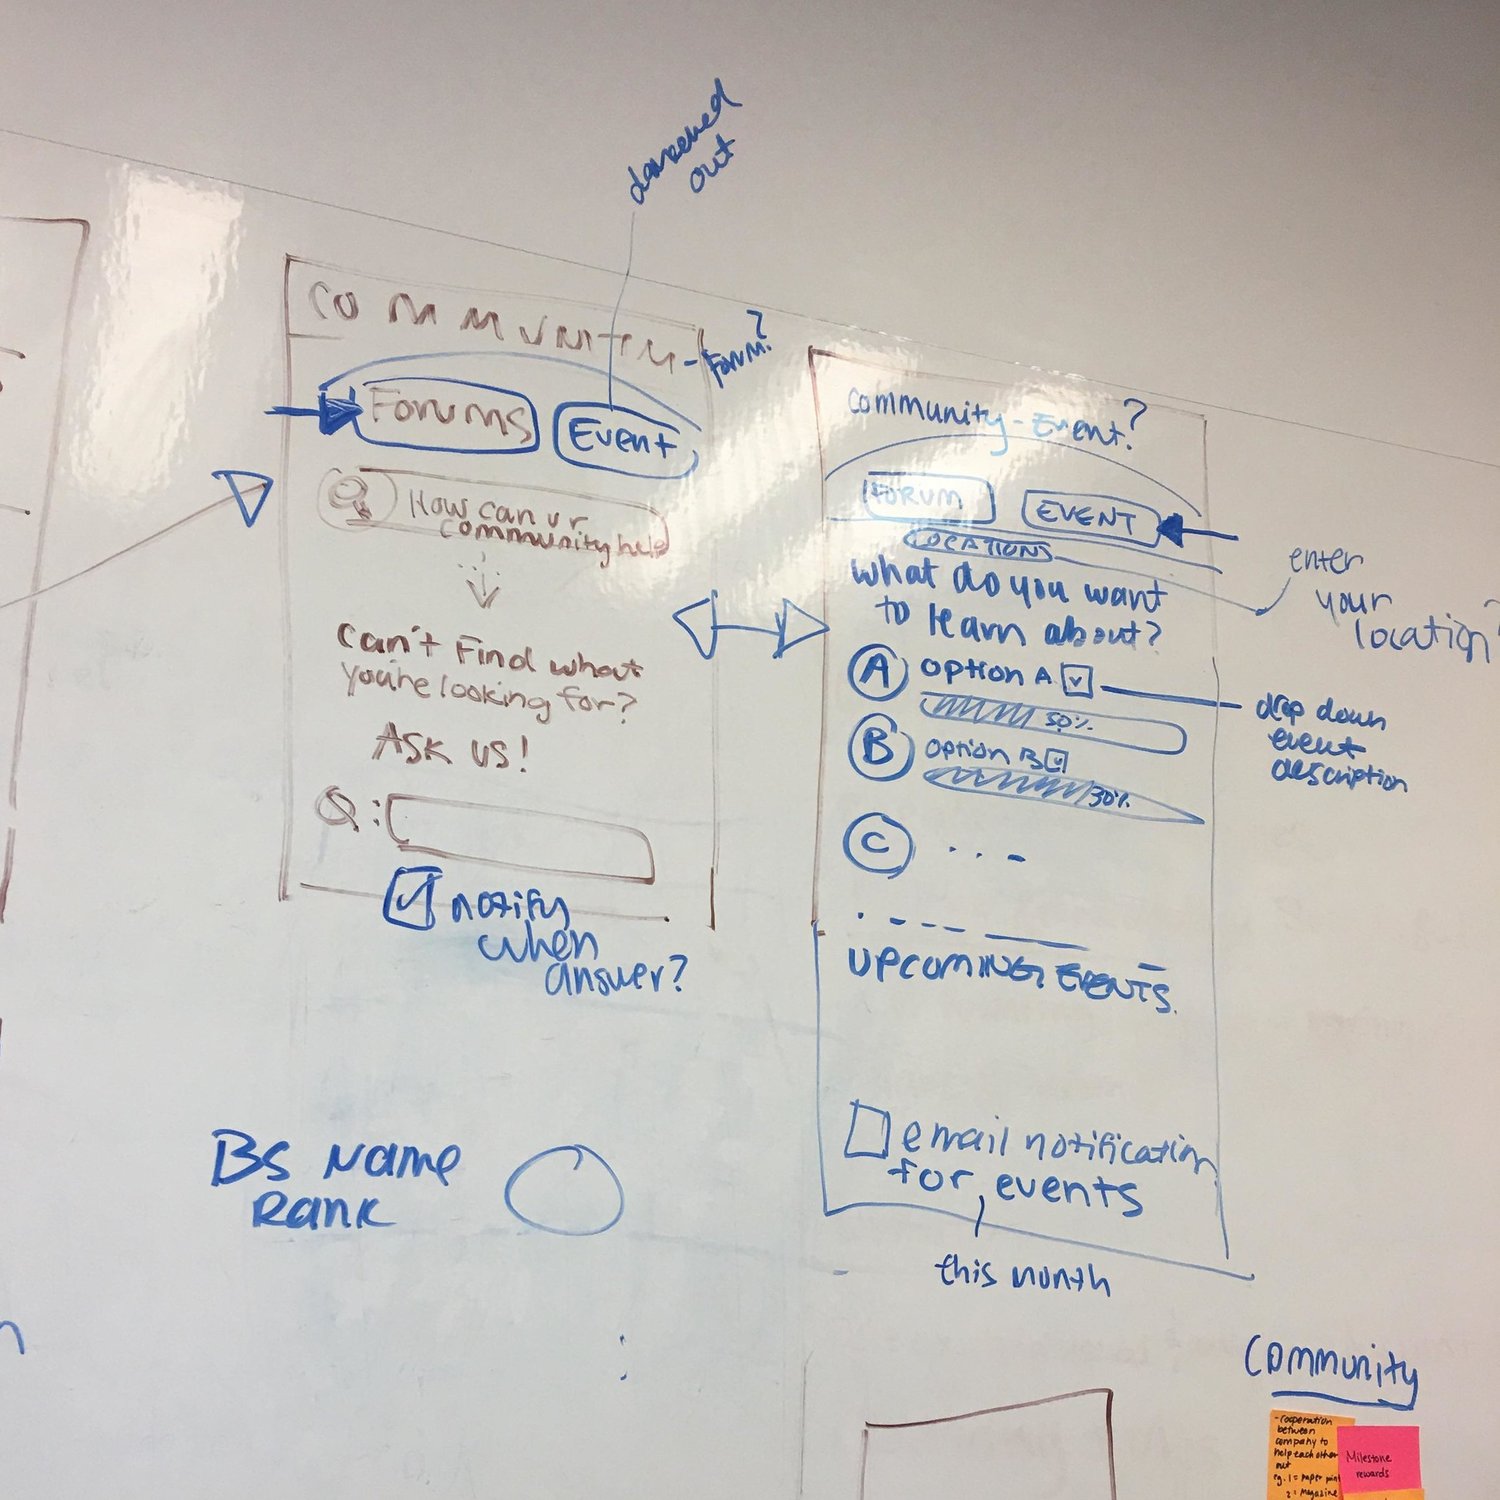 darkened
out
COMMUNITY - Forum?
Forums
Event
How can ur
community help
Can't Find what
you're looking for?
ASK US!
Q:
notify
when
answer?
community - Event?
FORUM
EVENT
LOCATIONS
enter
your
location?
what do you want
to learn about?
A
option A
50%
drop down
event
description
B
option B
30%
C
...
UPCOMING EVENTS.
email notification
for events
this month
BS NAME
RANK
Community
- cooperation
between
company to
help each other
out
eg. 1 = paper
2 = magazine
Milestone
rewards